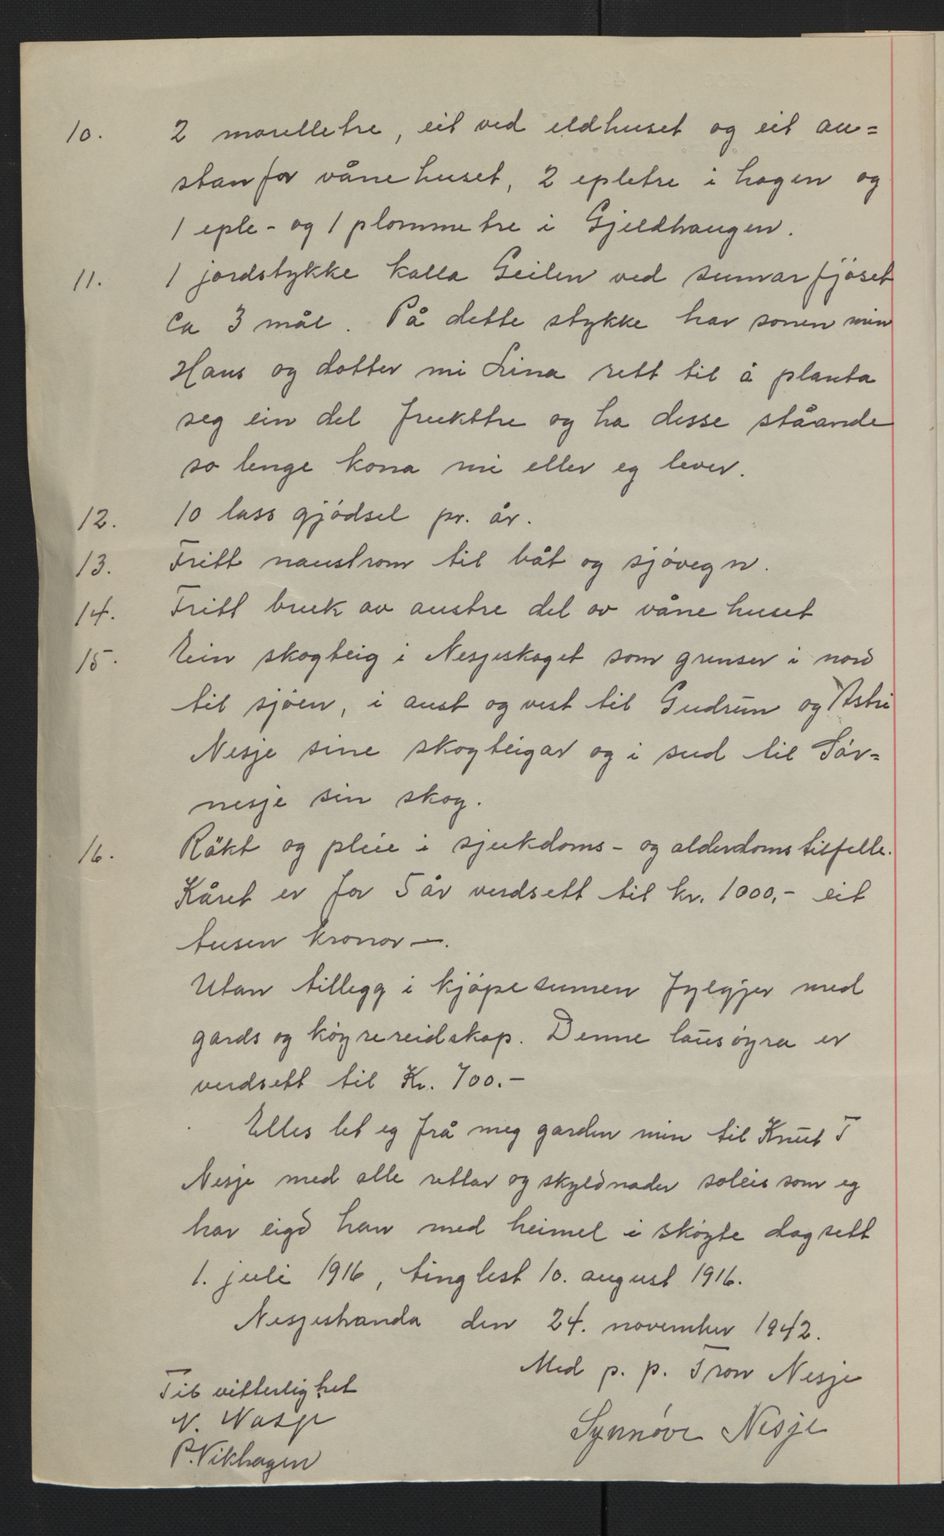 10. 2 morelletre, eit ved eldhuset og eit au=
stanfor vånehuset, 2 epletre i hagen og
1 eple- og 1 plommetre i Gjeldhaugen.
11. 1 jordstykke kalla Geilen ved sumarfjøset
Ca 3 mål. På dette stykke har sonen min
Hans og dotter mi Lina rett til å planta
seg ein del frukttre og ha desse ståande
so lenge kona mi eller eg lever.
12. 10 lass gjødsel pr. år.
13. Fritt naustrom til båt og sjøvegn.
14. Fritt bruk av austre del av vånehuset
15. Ein skogteig i Nesjeskoget som grenser i nord
til sjøen, i aust og vest til Gudrun og Astri
Nesje sine skogteigar og i sud til Sør=
nesje sin skog.
16. Røkt og pleie i sjukdoms- og alderdomstilfelle.
Kåret er for 5 år verdsett til kr. 1000,- eit
tusen kronor —.
Utan tillegg i kjøpesumen fylgjer med
gards og køyrereidskap. Denne lausøyra er
verdsett til Kr. 700.-
Elles let eg frå meg garden min til Knut T
Nesje med alle rettar og skyldnader soleis som eg
har eigd han med heimel i skøyte dagsett
1. juli 1916, tinglest 10. august 1916.
Nesjestranda den 24. november 1942.
Med p. p. Tron Nesje
Synnøve Nesje
Til vitterlighet
N. Nasje
P. Vikhagen